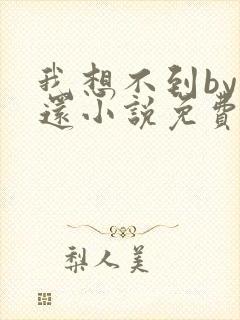 我想不到by
還小說免費
梨人美